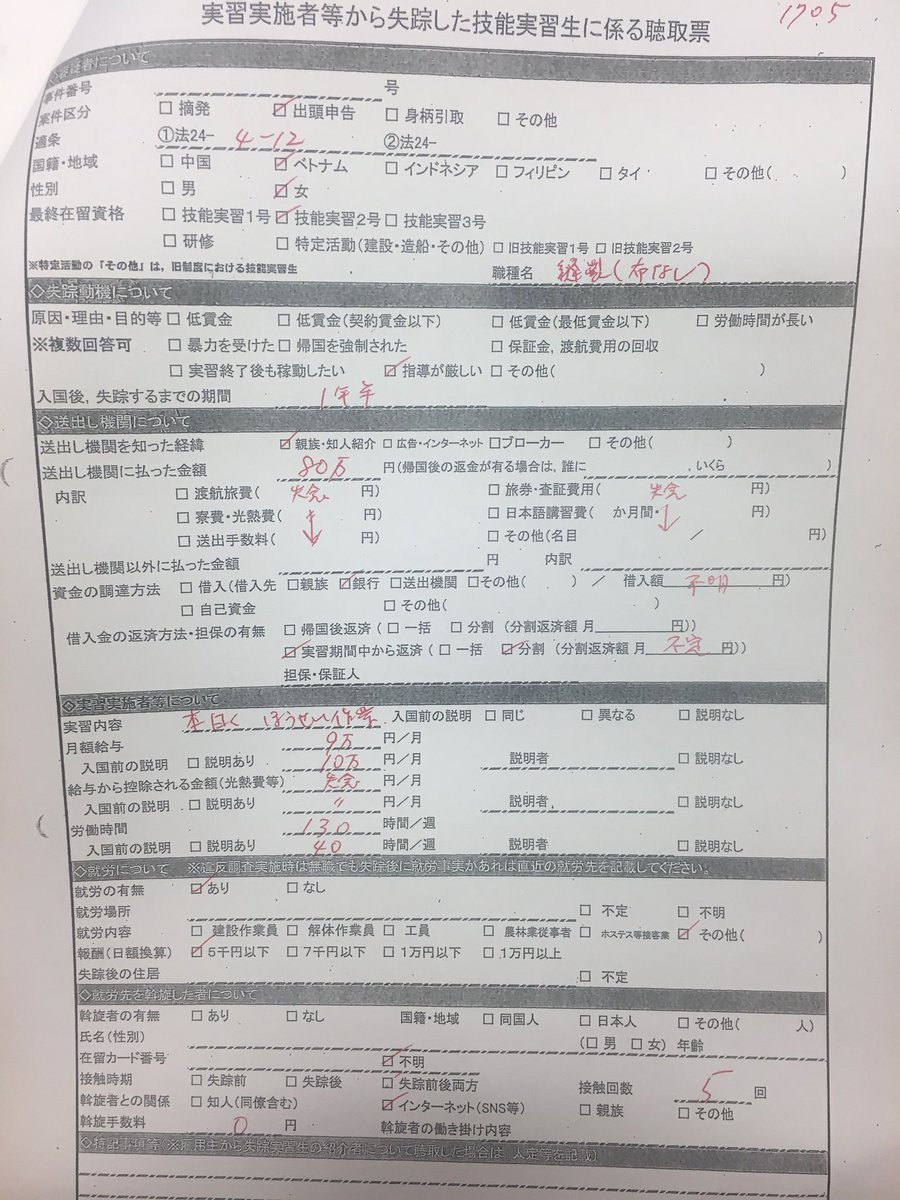 実習実施者等から失踪した技能実習生に係る聴取票
1705
◇容疑者について
事件番号 号
案件区分 □ 摘発 ☑ 出頭申告 □ 身柄引取 □ その他
適条 ①法24- 4-12 ②法24-
国籍・地域 □ 中国 ☑ ベトナム □ インドネシア □ フィリピン □ タイ □ その他( )
性別 □ 男 ☑ 女
最終在留資格 □ 技能実習1号 ☑ 技能実習2号 □ 技能実習3号
□ 研修 □ 特定活動(建設・造船・その他) □ 旧技能実習1号 □ 旧技能実習2号
※特定活動の「その他」は，旧制度における技能実習生 職種名 縫製(布なし)
◇失踪動機について
原因・理由・目的等 □ 低賃金 □ 低賃金(契約賃金以下) □ 低賃金(最低賃金以下) □ 労働時間が長い
※複数回答可 □ 暴力を受けた □ 帰国を強制された □ 保証金，渡航費用の回収
□ 実習終了後も稼動したい ☑ 指導が厳しい □ その他( )
入国後，失踪するまでの期間 1年半
◇送出し機関について
送出し機関を知った経緯 ☑ 親族・知人紹介 □ 広告・インターネット □ ブローカー □ その他( )
送出し機関に払った金額 80万 円(帰国後の返金が有る場合は，誰に ，いくら )
内訳 □ 渡航旅費( 失念 円) □ 旅券・査証費用( 失念 円)
□ 寮費・光熱費( ↓ 円) □ 日本語講習費( か月間・ ↓ 円)
□ 送出手数料( 円) □ その他(名目 / 円)
送出し機関以外に払った金額 円 内訳
資金の調達方法 □ 借入(借入先 □ 親族 ☑ 銀行 □ 送出機関 □ その他( ) / 借入額 不明 円)
□ 自己資金 □ その他( )
借入金の返済方法・担保の有無 □ 帰国後返済 ( □ 一括 □ 分割 (分割返済額 月 円))
☑ 実習期間中から返済 ( □ 一括 ☑ 分割 (分割返済額 月 不定 円))
担保・保証人
◇実習実施者等について
実習内容 本日く ほうせい作業 入国前の説明 □ 同じ □ 異なる □ 説明なし
月額給与 9万 円/月
入国前の説明 □ 説明あり 10万 円/月 説明者 □ 説明なし
給与から控除される金額(光熱費等) 失念 円/月
入国前の説明 □ 説明あり 〃 円/月 説明者 □ 説明なし
労働時間 130 時間/週
入国前の説明 □ 説明あり 40 時間/週 説明者 □ 説明なし
◇就労について ※違反調査実施時は無職でも失踪後に就労事実があれば直近の就労先を記載してください。
就労の有無 ☑ あり □ なし
就労場所 □ 不定 □ 不明
就労内容 □ 建設作業員 □ 解体作業員 □ 工員 □ 農林業従事者 □ ホステス等接客業 ☑ その他( )
報酬(日額換算) ☑ 5千円以下 □ 7千円以下 □ 1万円以下 □ 1万円以上
失踪後の住居 □ 不定
◇就労先を斡旋した者について
斡旋者の有無 □ あり □ なし 国籍・地域 □ 同国人 □ 日本人 □ その他( 人)
氏名(性別) (□ 男 □ 女) 年齢
在留カード番号 ☑ 不明
接触時期 □ 失踪前 □ 失踪後 ☑ 失踪前後両方 接触回数 5 回
斡旋者との関係 □ 知人(同僚含む) ☑ インターネット(SNS等) □ 親族 □ その他
斡旋手数料 0 円 斡旋者の働き掛け内容
◇特記事項等(※雇用主から失踪実習生の紹介者について聴取した場合は，人定等を記載)